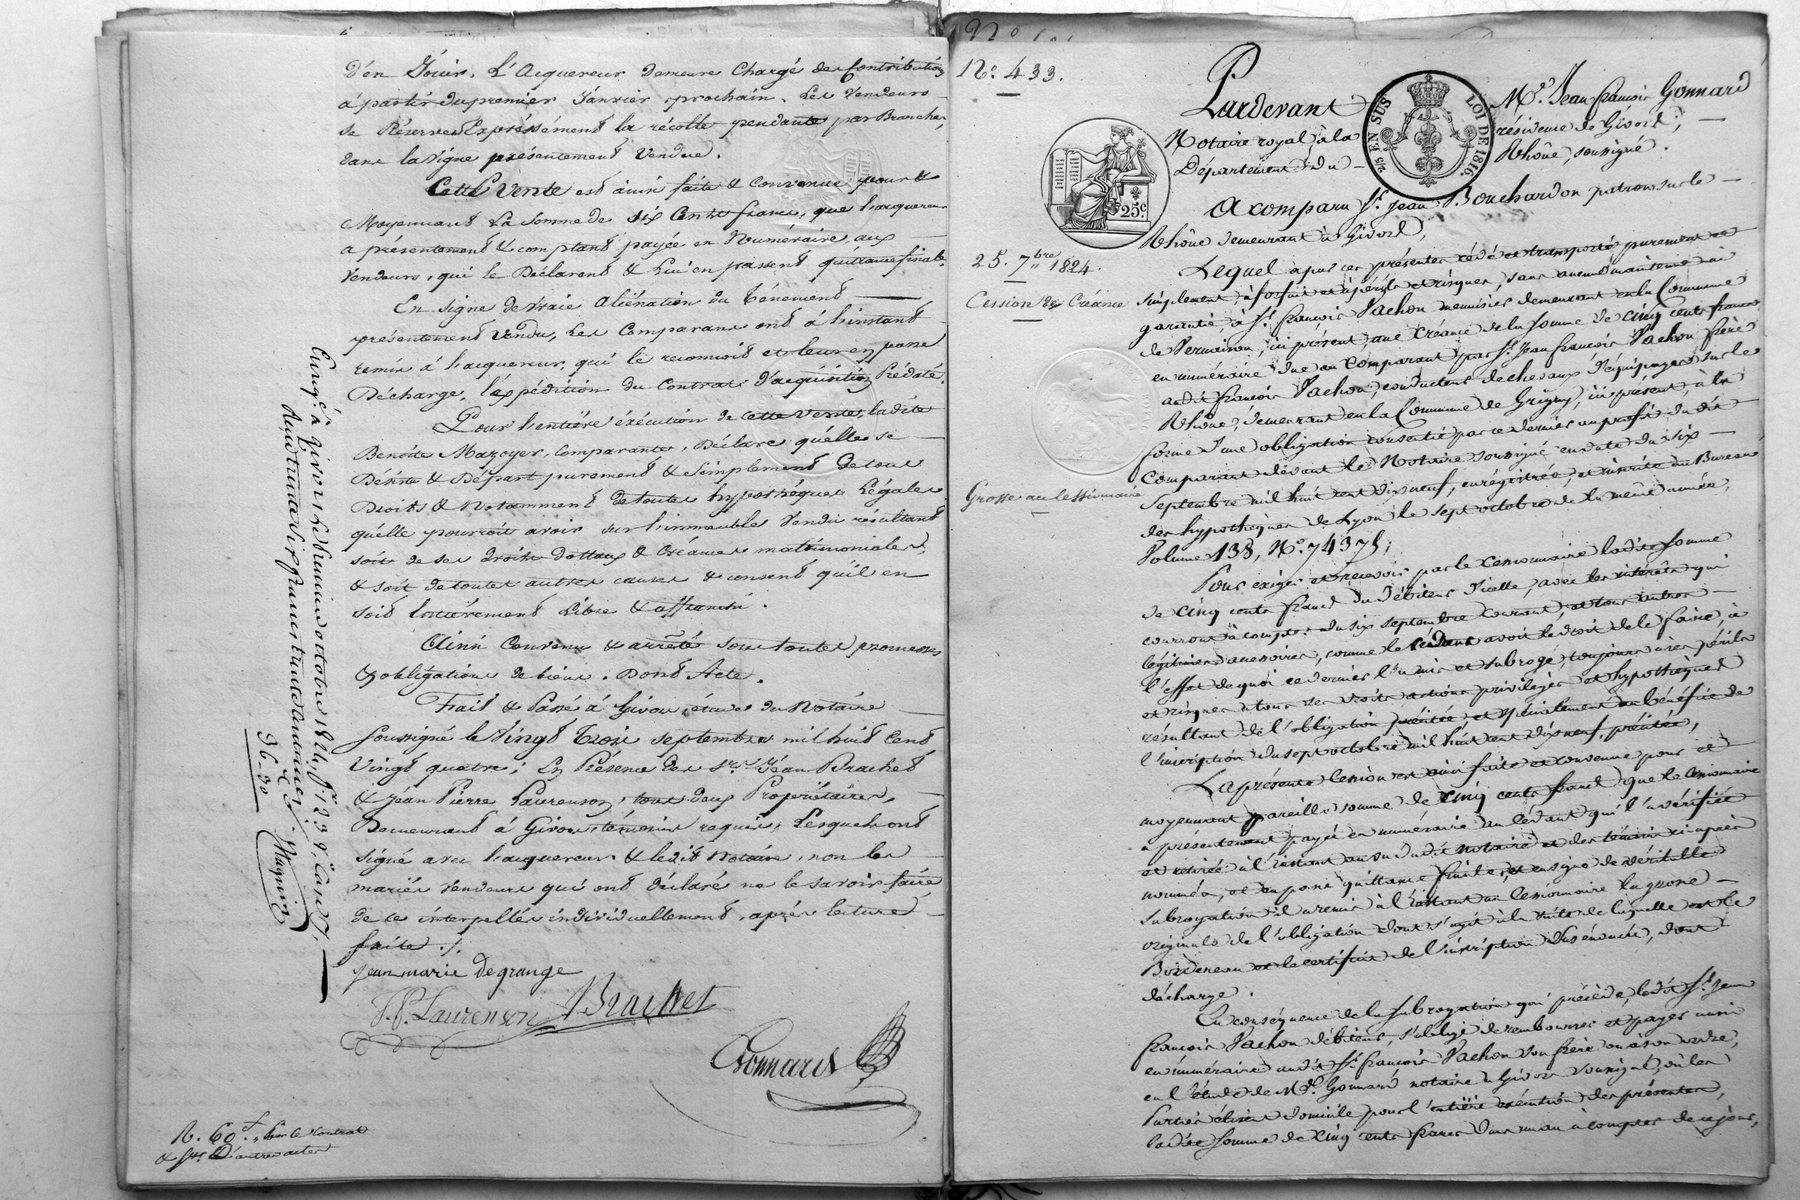 d'en Jouir. L'Acquereur demeure Chargé des Contributions
à partir du premier Janvier prochain. Les Vendeurs
se Réservent Expréssément la récolte pendante par Branches,
dans la Vigne présentement Vendue.
Cette Vente est ainsi faite & Convenue pour &
Moyennant la Somme de six Cents francs, que l'acquereur
a présentement & comptant payée en Numéraire, aux
Vendeurs, qui le Déclarent & lui en passent quittance finale.
En Signe de Vraie Aliénation du Ténement
présentement Vendu, Les Comparans ont à l'instant
remis à l'acquereur, qui le reconnoit et leur en passe
Décharge, l'expédition du Contrat d'acquisition Prédaté.
Pour l'entière éxécution de cette Vente, ladite
Benoîte Mazoyer, Comparante, Déclare qu'elle se
Désiste & Départ purement & Simplement de tous
Droits & Notamment de toutes hypothéques Légales
qu'elle pourroit avoir sur l'immeuble Vendu résultant
soit de ses droits dottaux & Créances matrimoniales,
& soit de toutes autres causes & consent qu'il en
soit Entièrement Libre & affranchi.
Ainsi Convenu & arrêté sous toutes promesses
& obligations de biens. Dont Acte.
Fait & Passé à Givors, étude du Notaire
Soussigné le Vingt Trois septembre mil huit Cent
Vingt quatre; En Présence des Srs. Jean Brachet
& Jean Pierre Laurenson, tous deux Propriétaires,
Demeurant à Givors, témoins requis, Lesquels ont
Signé avec l'acquereur & ledit Notaire, non les
mariés Vendeurs qui ont déclaré ne le savoir faire
de ce interpellés individuellement, après lecture
faite ./.
Jean marie Degrange
J.P. Laurenson Brachet
Gonnard
36.30
R. 60
N° 433.
25. 7bre 1824.
Cession de Créance
Grosse au Cessionnaire
25c.
2/5 EN SUS
LOI DE 1816
Pardevant Me. Jean francois Gonnard
Notaire royal à la résidence de Givors,
Département du Rhône soussigné.
A comparu Sr. Jean Bouchardon patron sur le
Rhône demeurant à Givors,
Lequel a par ces présentes cédé et transporté purement et
simplement, à forfait et à périls et risques, sans aucune maintenue ni
garantie, à Sr. francois Vachon menuisier demeurant en la Commune
de Vernaison, ici présent, une Créance de la somme de cinq cents francs
en numéraire due au comparant par Sr. Jean francois Vachon frère
audit francois Vachon, conducteur de chevaux d'équipages sur le
Rhône, demeurant en la Commune de Grigny, ici présent, à la
forme d'une obligation consentie par ce dernier au profit dudit
Comparant devant le Notaire soussigné en date du six
Septembre mil huit cent dix neuf, enrégistrée, et inscrite au Bureau
des hypothèques de Lyon le sept octobre de la même année,
Volume 138, N°. 74375;
Pour exiger et recevoir par le cessionnaire ladite somme
de cinq cents francs du Débiteur d'icelle, avec les intérêts qui
courront à compter du six septembre courant, et tous autres
légitimes accessoires, comme le cédant avoit le droit de le faire, à
l'effet de quoi ce dernier l'a mis et subrogé, toujours à ses périls
et risques à tous ses droits actions privilèges et hypothèques
résultant de l'obligation précitée et spécialement au bénéfice de
l'inscription du sept octobre mil huit cent dix neuf, précitée,
La présente Cession est ainsi faite et convenue pour et
moyennant pareille somme de cinq cents francs que le cessionnaire
a présentement payée en numéraire au cédant qui l'a vérifiée
et retirée à l'instant au vu dudit notaire et des témoins ci après
nommés, et en passe quittance finale, et en signe de véritable
subrogation il a remis à l'instant au cessionnaire la grosse
originale de l'obligation dont s'agit à la suite de laquelle est le
Bordereau et le certificat de l'inscription susénoncée, dont
décharge.
En conséquence de la subrogation qui précède, ledit Sr. Jean
francois Vachon débiteur, s'oblige de rembourser et payer aussi
en numéraire audit Sr. francois Vachon son frère ou à son ordre,
en l'étude de Me. Gonnard notaire à Givors soussigné, où les
Parties élisent domicile pour l'entière exécution des présentes,
ladite somme de cinq cents francs dans un an à compter de ce jour,